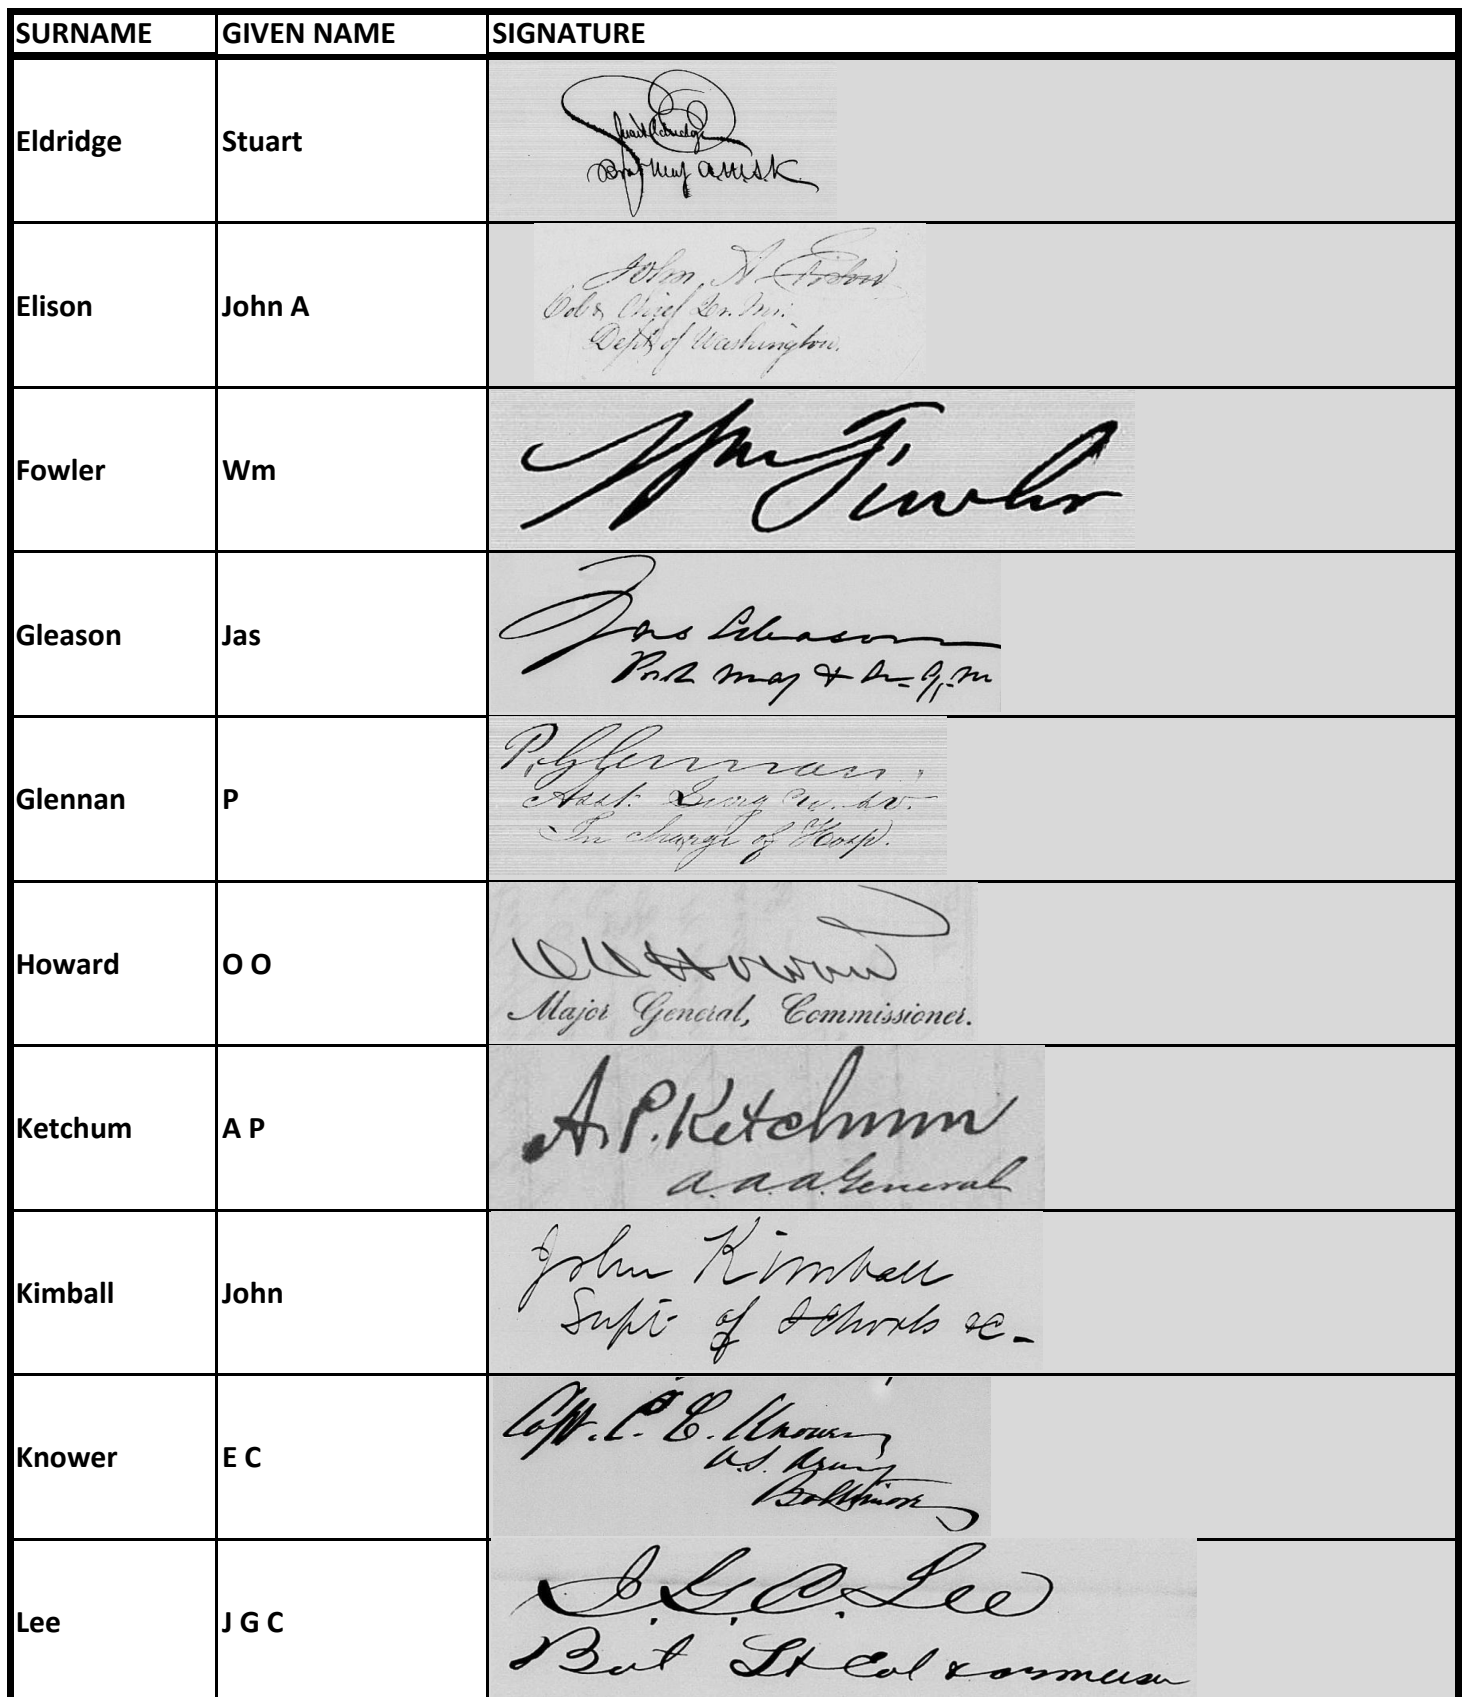 SURNAME GIVEN NAME SIGNATURE
Eldridge Stuart
Stuart Eldridge
Bvt Maj
Elison John A
John A Elison
Col & Chief Qr. Mr.
Dept of Washington.
Fowler Wm
Wm Fowler
Gleason Jas
Jas Gleason
Maj &
Glennan P
P. Glennan.
Asst. Surg
In charge of Hosp.
Howard O O
O O Howard
Major General, Commissioner.
Ketchum A P
A. P. Ketchum
a. a. a. General
Kimball John
John Kimball
Supt of Schools &c -
Knower E C
Capt. E. C. Knower
U.S. Army
Baltimore
Lee J G C
J. G. C. Lee
Bvt Lt Col &